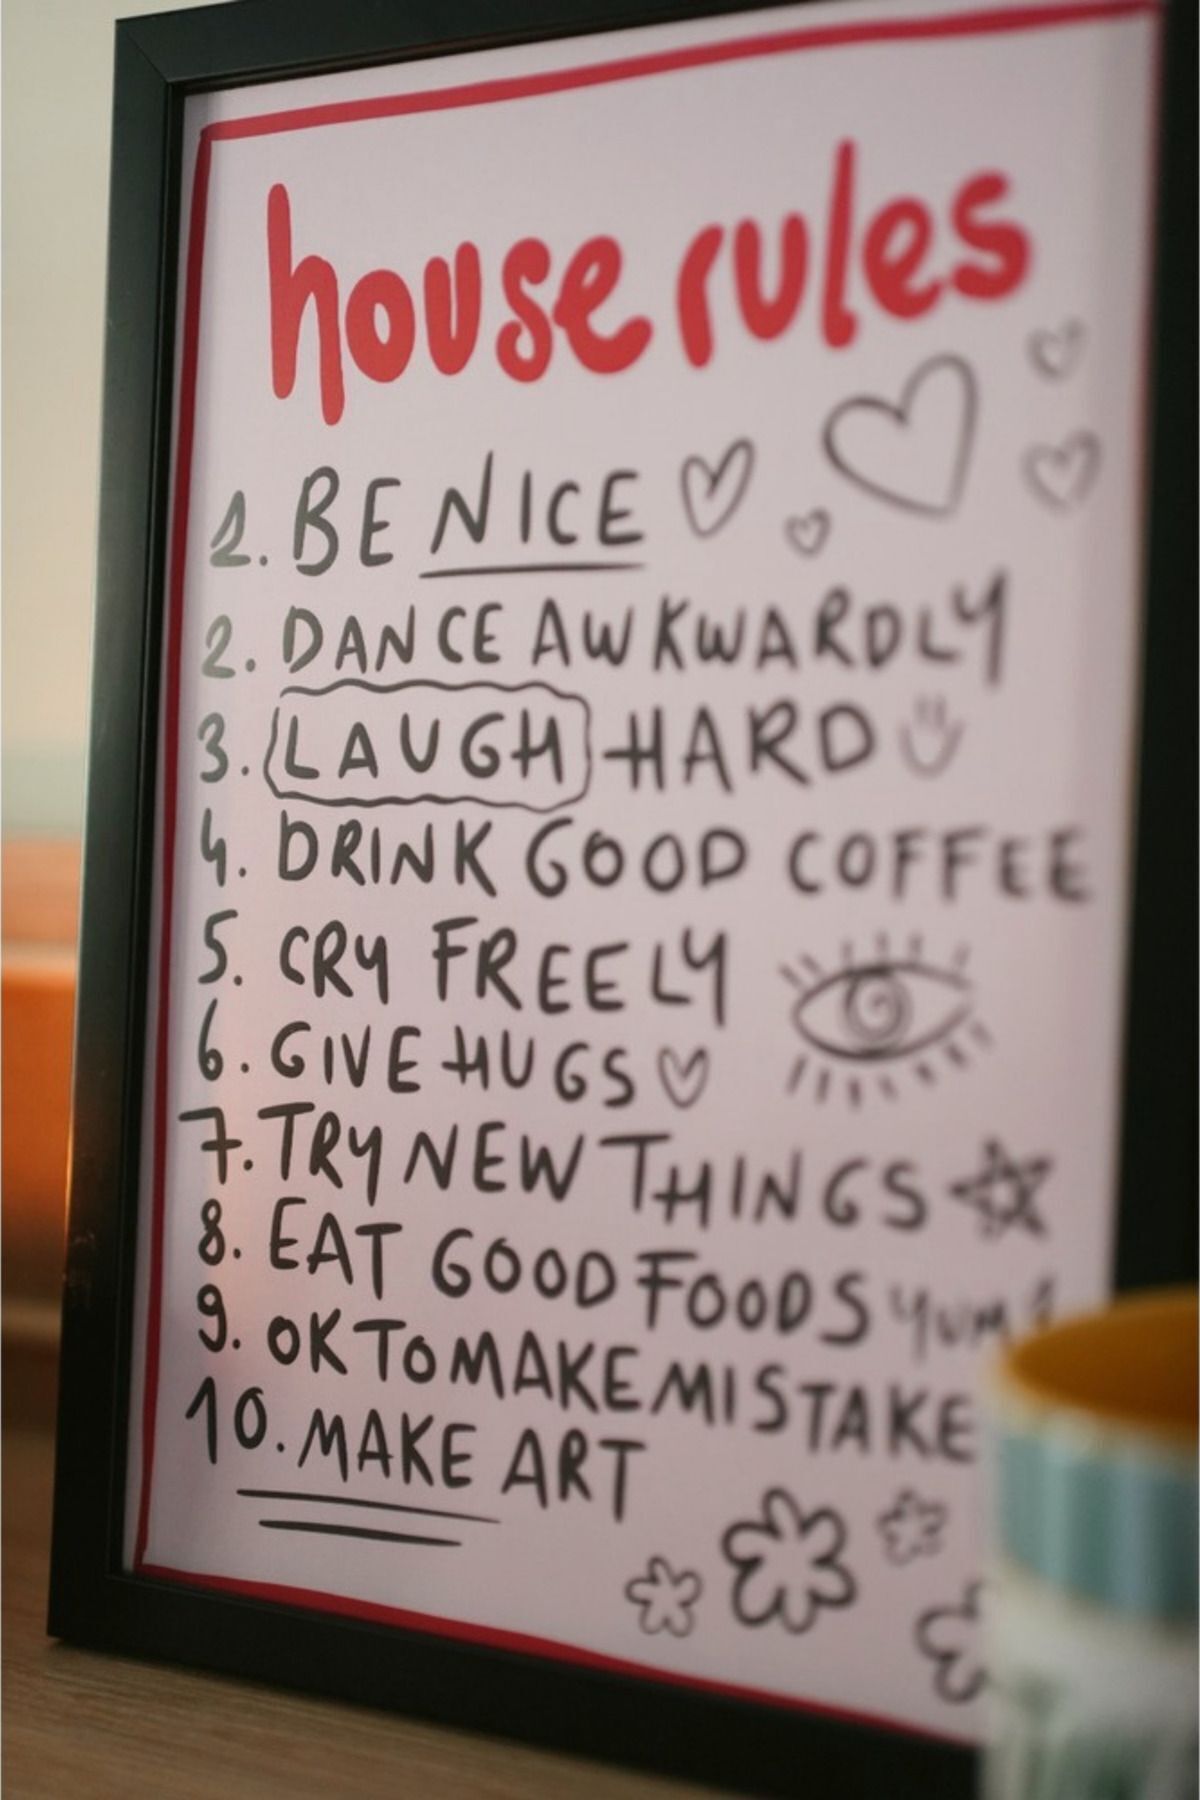 house rules
1. BE NICE
2. DANCE AWKWARDLY
3. LAUGH HARD
4. DRINK GOOD COFFEE
5. CRY FREELY
6. GIVE HUGS
7. TRY NEW THINGS
8. EAT GOOD FOODS YUM
9. OK TO MAKE MISTAKE
10. MAKE ART